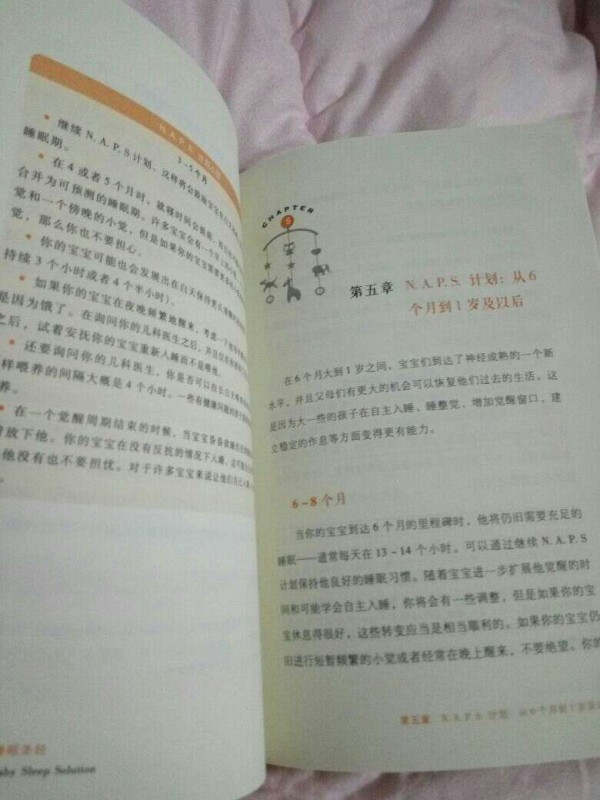 N.A.P.S.
3~5个月
• 继续N.A.P.S计划，这样将会
睡眠期。
• 在4或者5个月时，
合并为可预测的睡眠期。许多宝宝会有一个
觉和一个傍晚的小觉，但是如果你的宝宝
觉，那么你也不要担心。
• 你的宝宝可能也会发展出在白天保持更
持续3个小时或者4个半小时）。
• 如果你的宝宝在夜晚频繁地醒来，考虑一下
是因为饿了。在询问你的儿科医生之后，并且
之后，试着安抚你的宝宝重新入睡而不是喂他。
• 还要询问你的儿科医生，你是否可以在
样喂养的间隔大概是4个小时。一些有健康问题的
养。
• 在一个觉醒周期结束的时候，当宝宝
放下他。你的宝宝在没有反抗的情况下入睡，
他没有也不要担忧。对于许多宝宝来说让他们自己入睡
睡眠圣经
Baby Sleep Solution
CHAPTER
5
第五章 N.A.P.S. 计划：从6
个月到1岁及以后
在6个月大到1岁之间，宝宝们到达了神经成熟的一个新
水平，并且父母们有更大的机会可以恢复他们过去的生活。这
是因为大一些的孩子在自主入睡、睡整觉、增加觉醒窗口，建
立稳定的作息等方面变得更有能力。
6~8个月
当你的宝宝到达6个月的里程碑时，他将仍旧需要充足的
睡眠——通常每天在13~14个小时。可以通过继续N.A.P.S
计划保持他良好的睡眠习惯。随着宝宝进一步扩展他觉醒的时
间和可能学会自主入睡，你将会有一些调整，但是如果你的宝
宝休息得很好，这些转变应当是相当顺利的。如果你的宝宝仍
旧进行短暂频繁的小觉或者经常在晚上醒来，不要绝望。你的
第五章 N.A.P.S.计划：从6个月到1岁及以